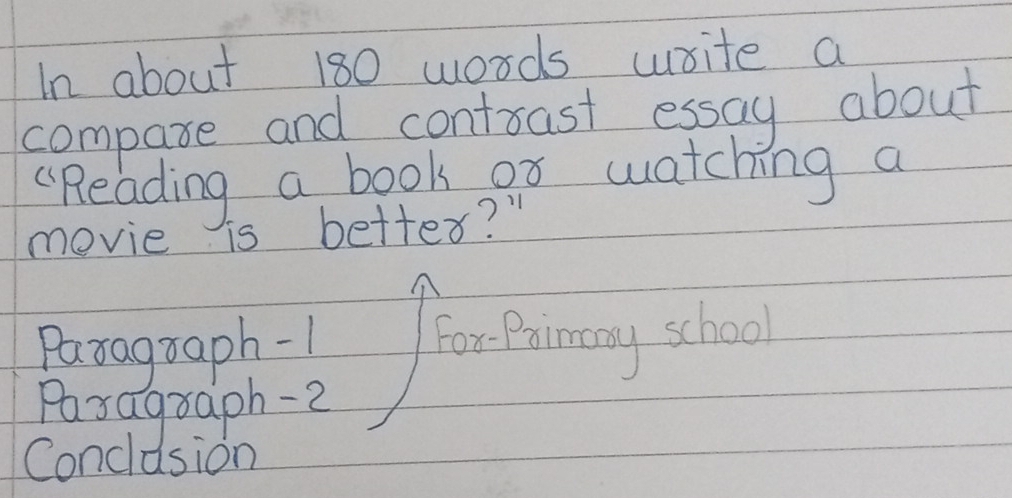 In about 180 words write a
compare and contrast essay about
"Reading a book or watching a
movie is better?"
Paragraph-1
For-Primary school
Paragraph-2
Conclusion